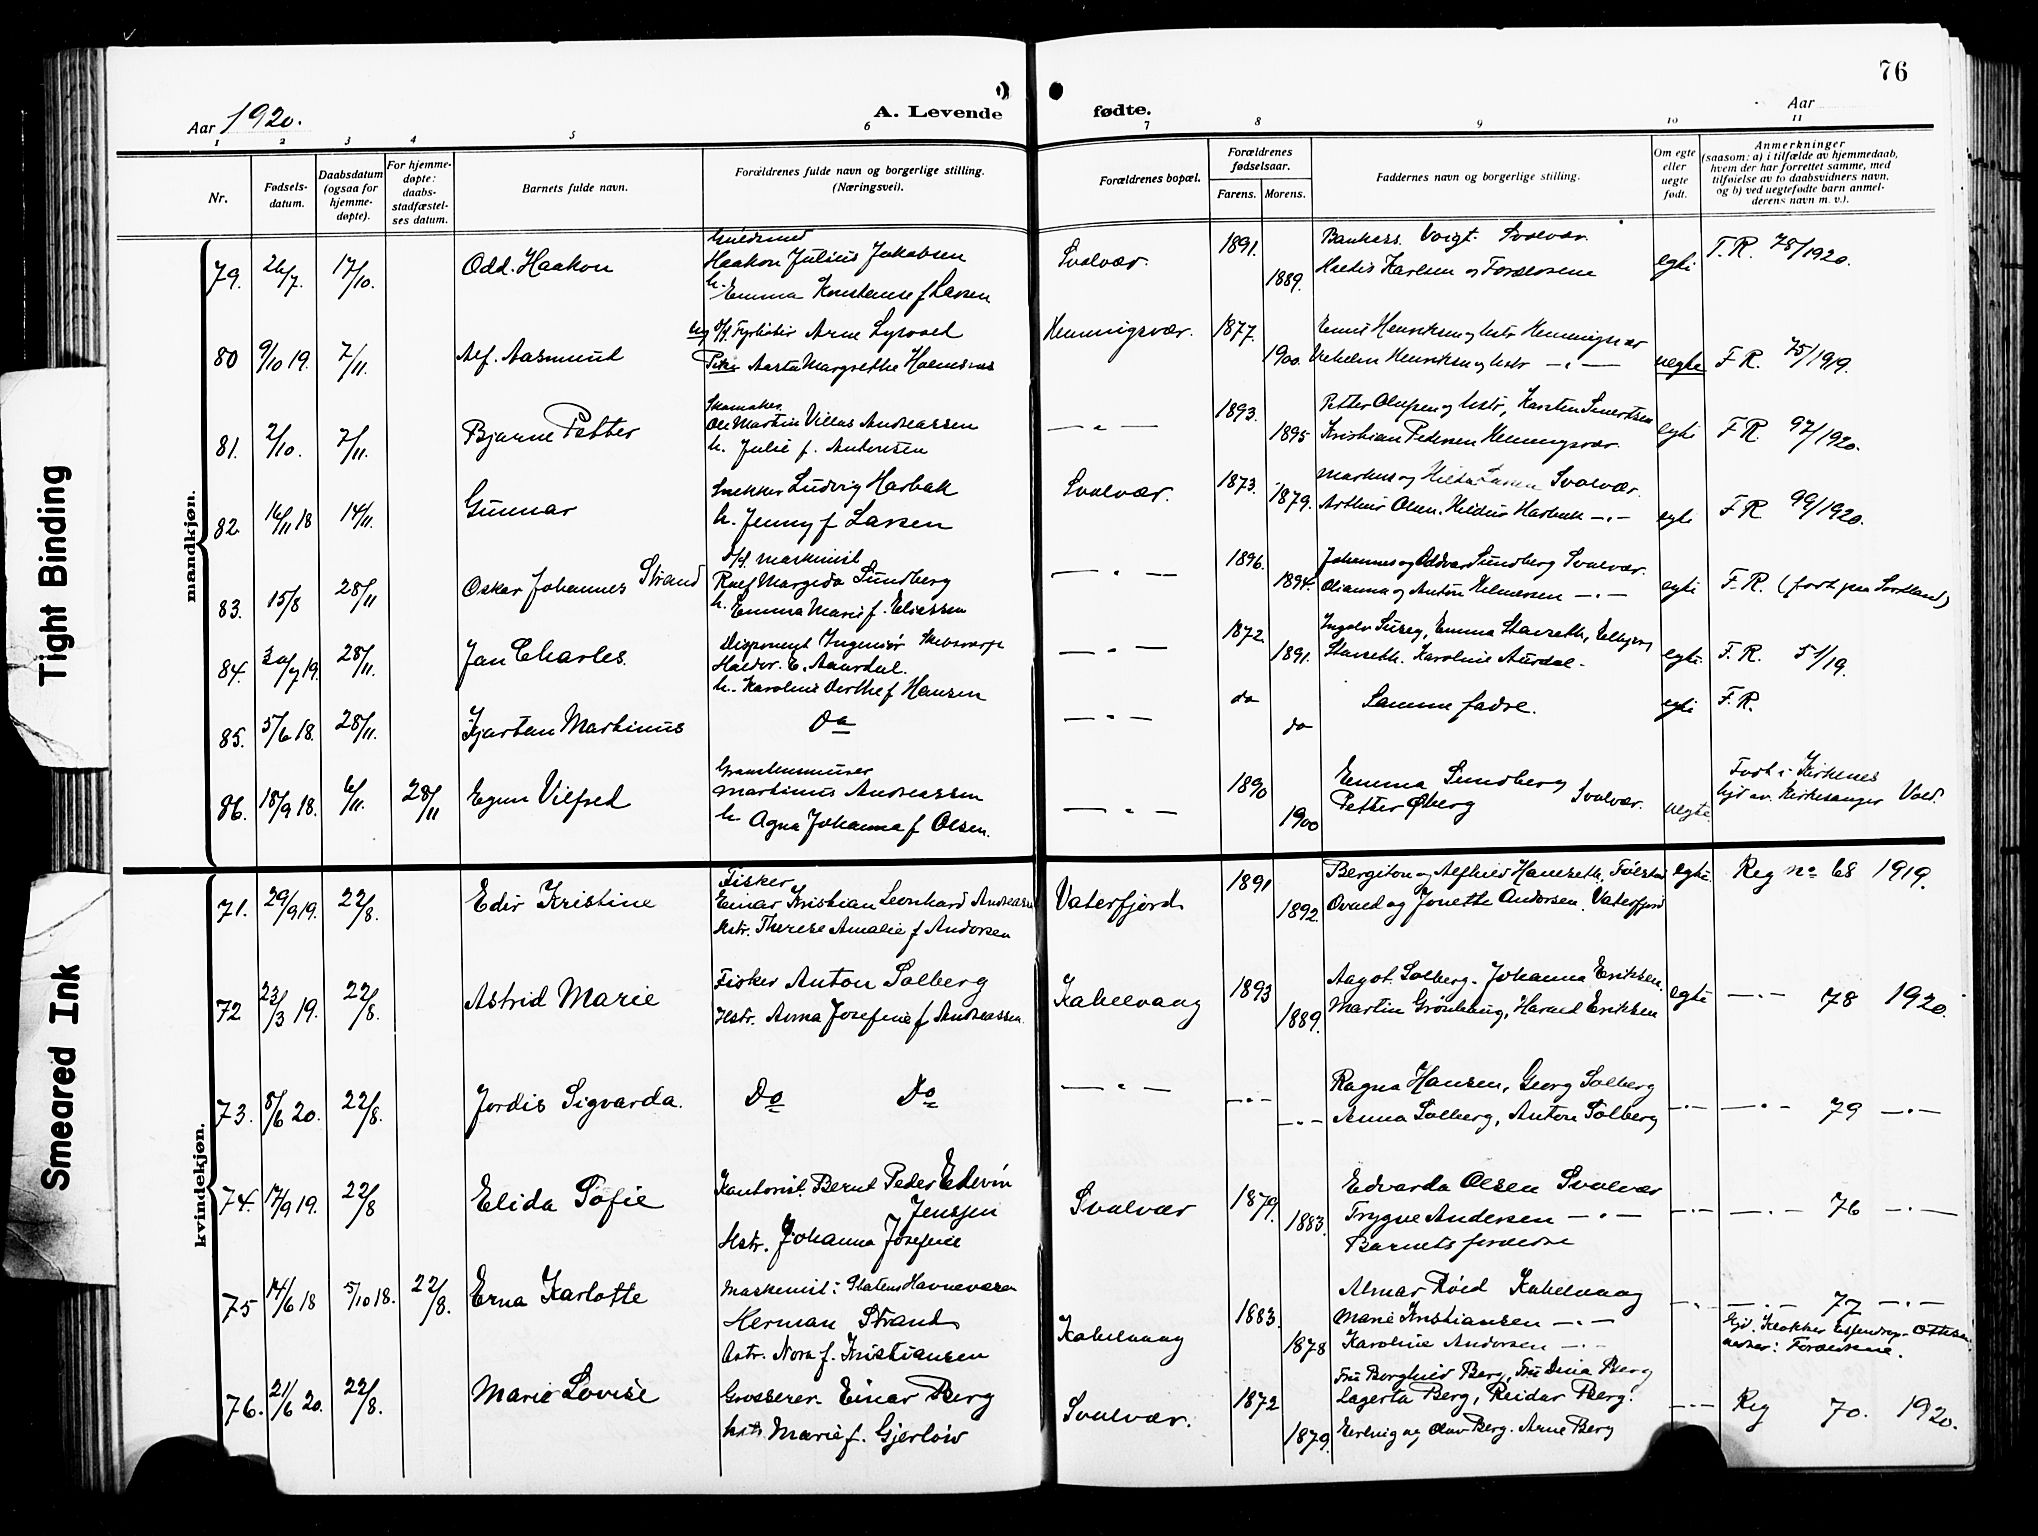 76
Aar 1920.
A. Levende fødte.
Aar
1 2 3 4 5 6 7 8 9 10 11
Nr.
Fødsels-
datum.
Daabsdatum
(ogsaa for
hjemme-
døpte).
For hjemme-
døpte:
daabs-
stadfæstel-
ses datum.
Barnets fulde navn.
Forældrenes fulde navn og borgerlige stilling.
(Næringsvei).
Forældrenes bopæl.
Forældrenes
fødselsaar.
Farens. Morens.
Faddernes navn og borgerlige stilling.
Om egte
eller
uegte
født.
Anmerkninger
(saasom: a) i tilfælde av hjemmedaab,
hvem der har forrettet samme, med
tilføielse av to daabsvidners navn,
og b) ved uegtefødte barn anmel-
derens navn m. v.).
mandkjøn.
79. 26/7. 17/10. Odd. Haakon
Haakon Julius Jakobsen
h. Emma Konstanse f Larsen
Svolvær. 1891. 1889.
Svolvær.
Karlsen og Forældrene
egte F. R. 78/1920.
80 9/10 19. 7/11. Alf. Aasmund
Arne
Pike Margrethe
Henningsvær. 1877. 1900.
Henriksen og hstr Henningsvær
Henriksen og hstr — " —
uegte F R. 75/1919.
81. 2/10. 7/11. Bjarne Petter
Skomaker
Ole Martin Andreassen
h. Julie f. Andersen
— " — 1893. 1895
Petter Olufsen og hstr, Karsten
Kristian Pedersen Henningsvær.
egte F R. 97/1920.
82. 16/11 18 14/11. Gunnar
Snekker Ludvig Harbak
h. Jenny f Larsen
Svolvær. 1873. 1879.
Markus og Hilda Larsen Svolvær.
Arthur Olsen. Harbak — " —
egte F R 99/1920.
83. 15/8 28/11 Oskar Johannes Strand
maskinist
Sundberg
h. Emma Marie f. Eliassen
— " — 1896. 1894.
Johannes og Oddvar Sundberg Svolvær.
Olianna og Anton Helmersen — " —
egte F. R. (født paa Sortland)
84. 30/7 19. 28/11. Jan Charles.
Disponent Ingeniør
h. Karoline f Hansen
— " — 1872. 1891.
Emma
Karoline Aurdal.
egte F. R. 51/19.
85. 5/6 18. 28/11. Kjartan Martinus
Do
— " — do do
Samme fadre.
egte F. R.
86. 18/9 18. 6/11. 28/11 Egun Vilfred
Martinus Andreassen
h Agna Johanna f Olsen.
— " — 1890 1900
Emma Sundberg
Petter Øberg Svolvær.
uegte.
Født i Kirkenes
hjd av. Kirkesanger Vold.
kvindekjøn.
71. 29/9 19. 22/8. Edis Kristine
Fisker
Einar Kristian Leonhard Andreassen
Hstr. Therese Amalie f Andersen
Vaterfjord. 1891 1892.
Bergiton og Alfhild
og Jonette Andersen. Vaterfjord
egte. Reg no 68 1919.
72 23/3 19. 22/8. Astrid Marie
Fisker Anton Solberg
Hstr. Anna Josefine f Andreassen.
Kabelvaag 1893 1889.
Aagot Solberg. Johanna Eriksen.
Martin Grønhaug, Harald Eriksen
egte — " — 78 1920.
73. 8/6 20. 22/8. Jordis Sigvarda.
Do Do
— " — — " — — " —
Ragna Hansen, Georg Solberg
Anna Solberg, Anton Solberg
— " — — " — 79 — " —
74. 17/9 19. 22/8 Elida Sofie
Kontorist. Bernt Peder Edvin
Jenssen
Hstr. Johanna Josefine
Svolvær 1879. 1883.
Edvarda Olsen Svolvær
Trygve Andersen — " —
Barnets forældre
— " — — " — 76 — " —
75 14/6 18 5/10 18. 22/8. Erna Karlotte
Maskinist i Statens Havnevæsen
Herman Strand
Hstr. Nora f. Kristiansen
Kabelvaag 1883. 1878
Almar Røed Kabelvaag
Marie Kristiansen — " —
Karoline Andersen — " —
— " — — " — 77 — " —
hjd. Klokker Esjendrop-Ottesen
vidner: Forældrene.
76. 21/6 20. 22/8. Marie Lovise
Grosserer. Einar Berg
hstr Marie f. Gjerløw
Svolvær. 1872 1879.
Fru Borghild Berg, Fru Dina Berg
Lagerta Berg, Reidar Berg.
Erling og Olav Berg. Arne Berg
— " — Reg 70. 1920.
Tight Binding
Smeared Ink